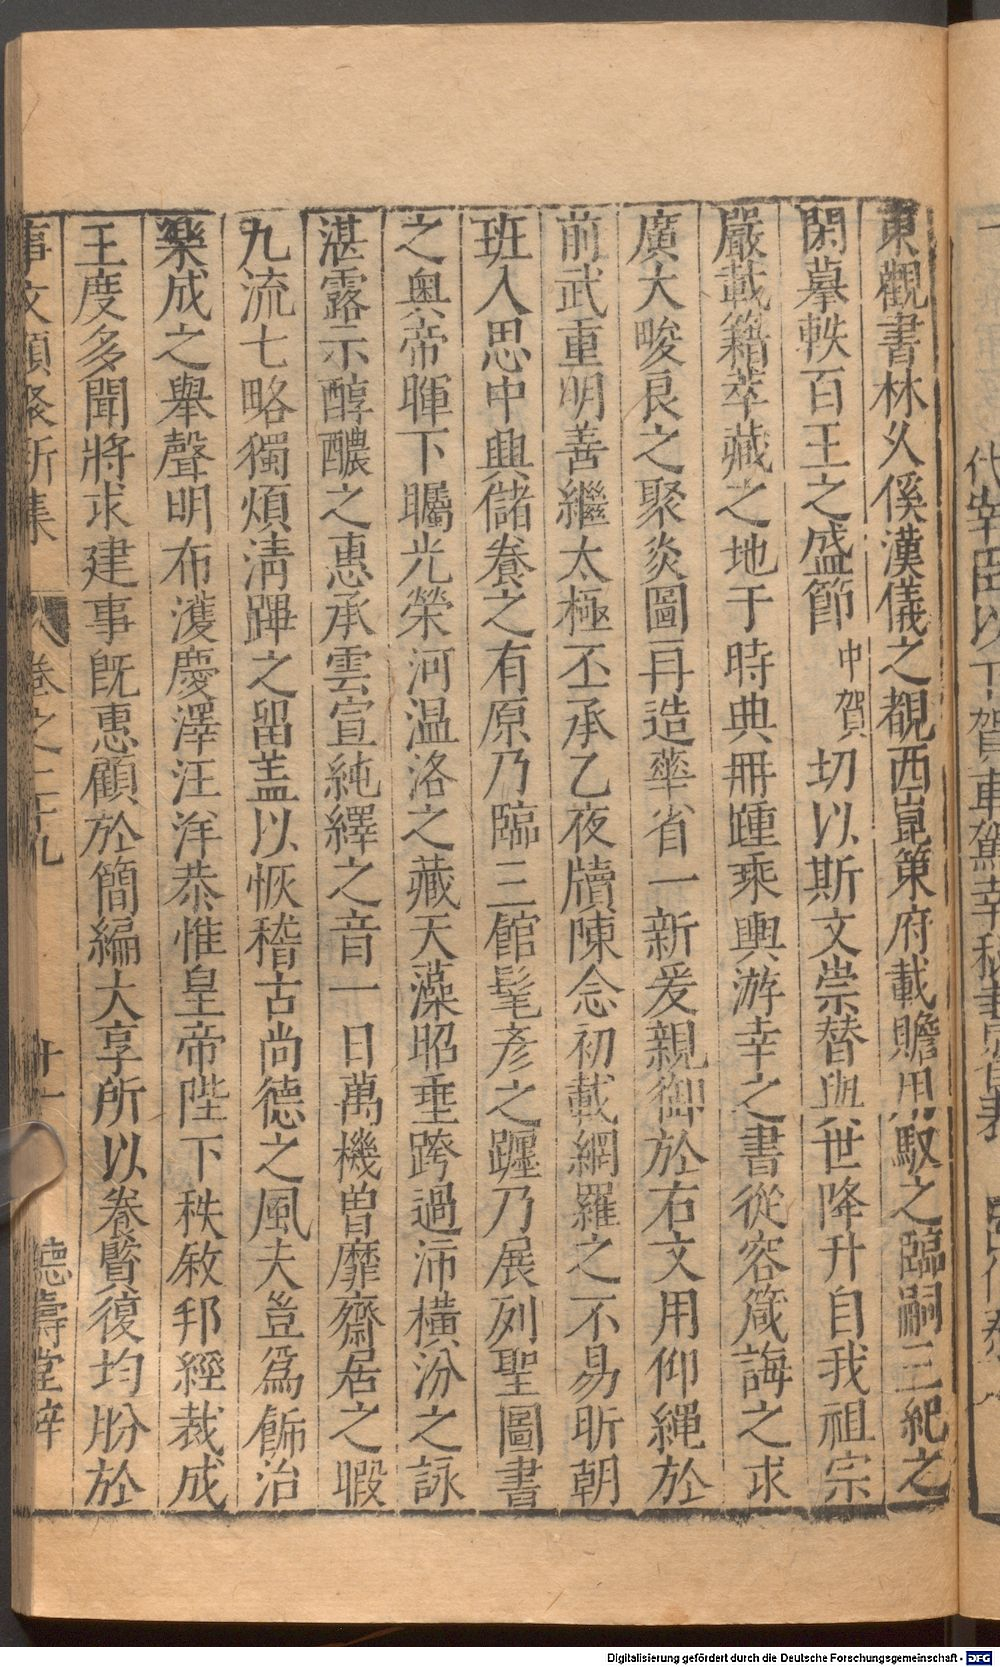 東觀書林久傒漢儀之覩西崑策府載瞻用馭之臨嗣三紀之
閑摹軼百王之盛節中賀切以斯文崇替與世降升自我祖宗
嚴載籍萃藏之地于時典冊踵乘輿游幸之書從容箴誨之求
廣大畯良之聚炎圖再造華省一新爰親御於右文用仰繩於
前武重明善繼太極丕承乙夜牘陳念初載網羅之不易昕朝
班入思中興儲養之有原乃臨三館髦彥之躔乃展列聖圖書
之奧帝暉下矚光榮河温洛之藏天藻昭垂跨過沛橫汾之詠
湛露示醇醲之惠承雲宣純繹之音一日萬機曾靡齋居之暇
九流七略獨煩淸蹕之留盖以恢稽古尚德之風夫豈爲飾治
樂成之舉聲明布濩慶澤汪洋恭惟皇帝陛下秩敘邦經裁成
王度多聞將求建事旣惠顧於簡編大享所以養賢復均肦於
事文類聚新集 卷之二十九 廿一 德壽堂梓
Digitalisierung gefördert durch die Deutsche Forschungsgemeinschaft - DFG